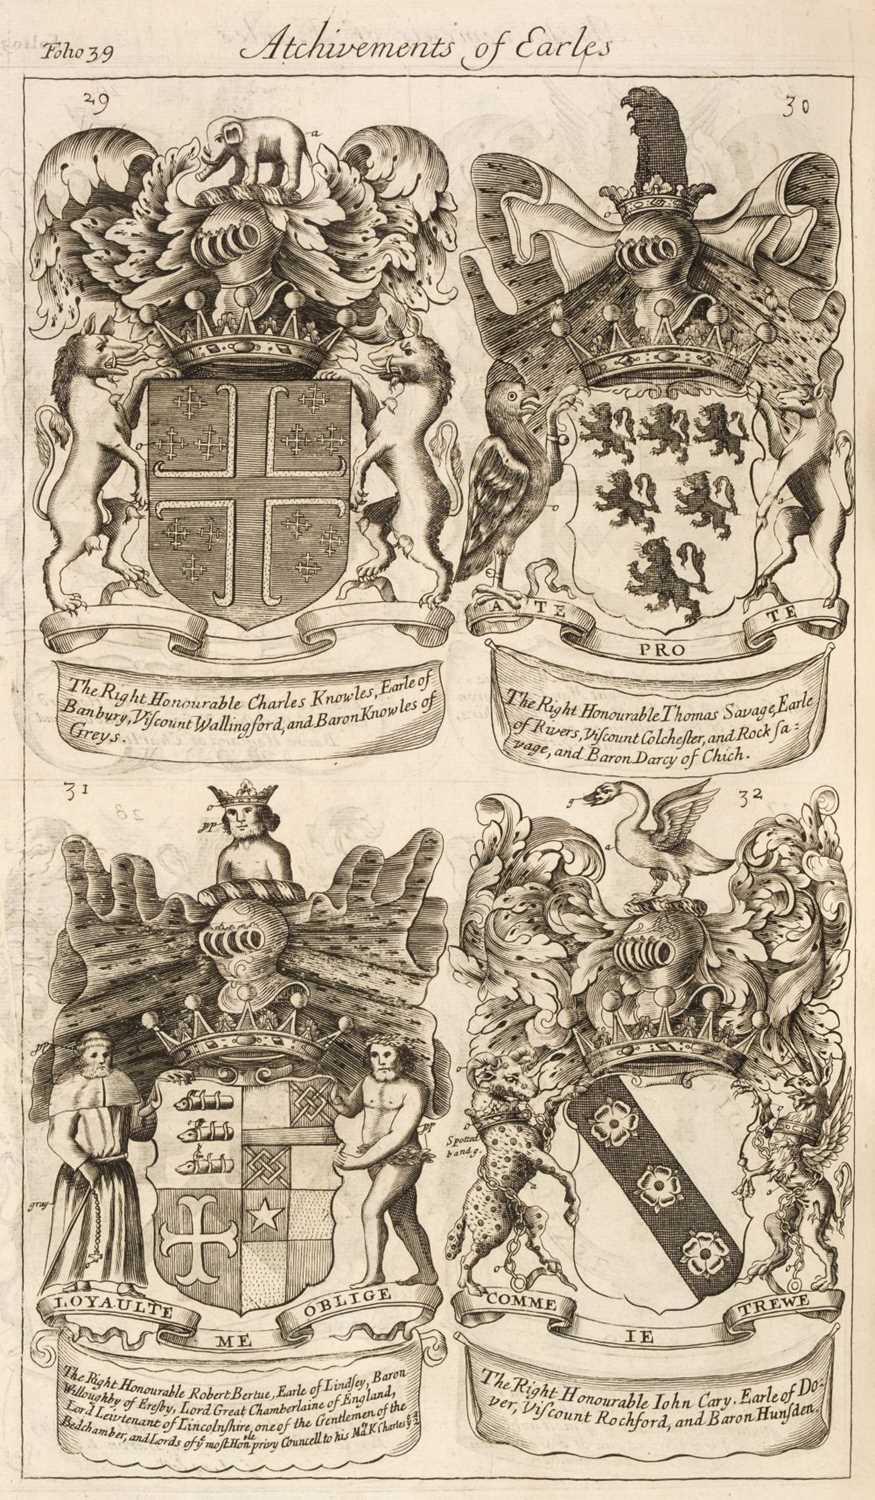 Folio 39
Atchivements of Earles
29
a
o
The Right Honourable Charles Knowles, Earle of
Banbury, Viscount Wallingford, and Baron Knowles of
Greys.
30
o
A TE
PRO
TE
The Right Honourable Thomas Savage, Earle
of Rivers, Viscount Colchester, and Rock sa=
vage, and Baron Darcy of Chich.
31
o
pp
pp
pp
gray
LOYAULTE
ME
OBLIGE
The Right Honourable Robert Bertue, Earle of Lindsey, Baron
Willoughby of Eresby, Lord Great Chamberlaine of England,
Lord Leivtenant of Lincolnshire, one of the Gentlemen of the
Bedchamber, and Lords of yͤ most Honͣᵇˡᵉ privy Councell to his Maᵗʸ K Charles yͤ 2ᵈ
32
g
a
o
o
Spotted
b and g.
COMME
IE
TREWE
The Right Honourable Iohn Cary, Earle of Do=
ver, Viscount Rochford, and Baron Hunsden.